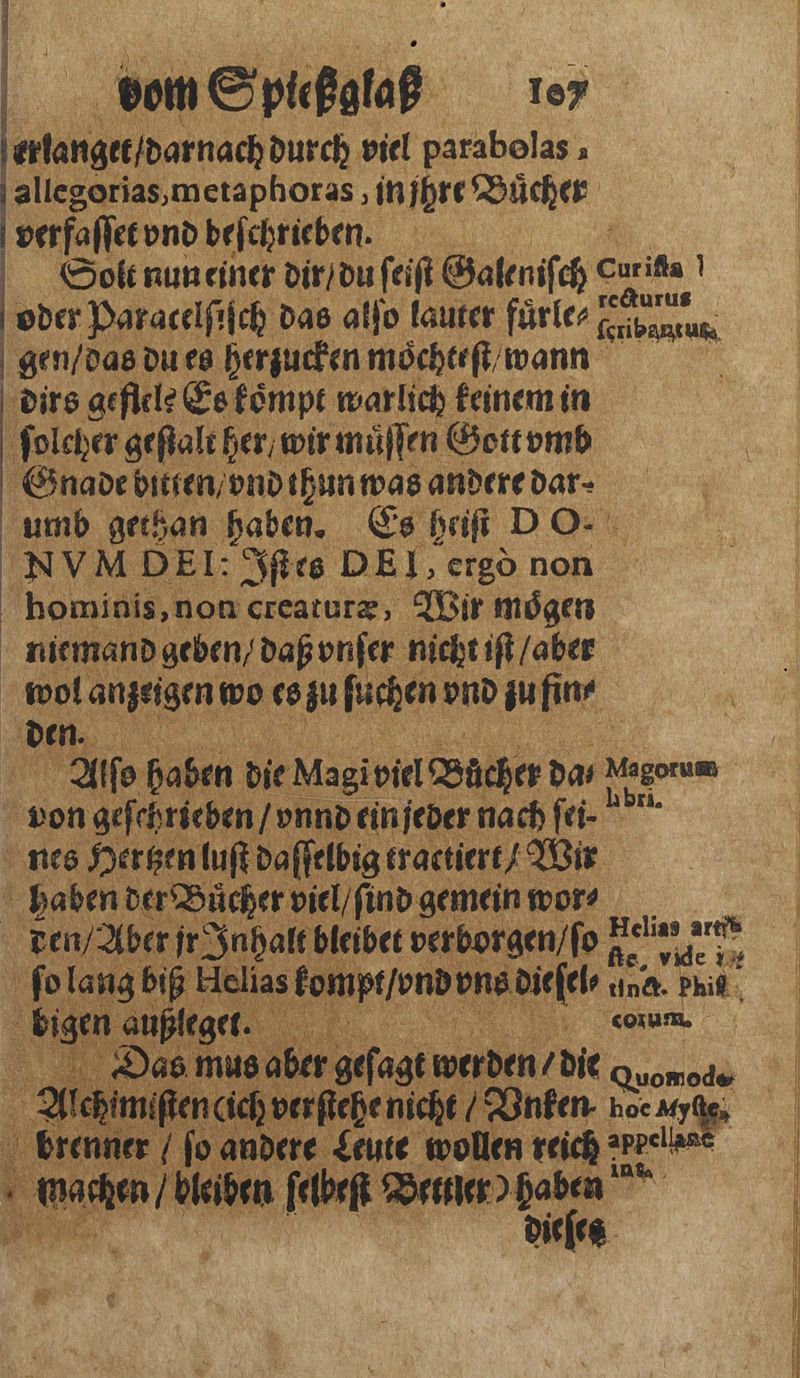 vom Spießglaß 107
erlanget/darnach durch viel parabolas,
allegorias,metaphoras, in jhre Bücher
verfasset vnd beschrieben.
Solt nun einer dir/du seist Galenisch
oder Paracelsisch das also lauter fürle⸗
gen/das du es herzucken möchtest/wann
dirs gefiel? Es kömpt warlich keinem in
solcher gestalt her/wir müssen Gott vmb
Gnade bitten/vnd thun was andere dar-
umb gethan haben. Es heist DO-
NVM DEI: Ist es DEI, ergò non
hominis, non creaturæ, Wir mögen
niemand geben/daß vnser nicht ist/aber
wol anzeigen wo es zu suchen vnd zu fin⸗
den.
Also haben die Magi viel Bücher da⸗
von geschrieben/vnnd ein jeder nach sei-
nes Hertzen lust dasselbig tractiert/Wir
haben der Bücher viel/sind gemein wor⸗
den/Aber jr Inhalt bleibet verborgen/so
so lang biß Helias kompt/vnd vns diesel⸗
bigen außleget.
Das mus aber gesagt werden/die
Alchimisten (ich verstehe nicht/Vnken-
brenner/so andere Leute wollen reich
machen/bleiben selbest Bettler) haben
dieses
Curista
recturus
scribantur.
Magorum
libri.
Helias arti
stæ, vide
tinct. Phil
corum.
Quomodo
hoc Myste.
appellant